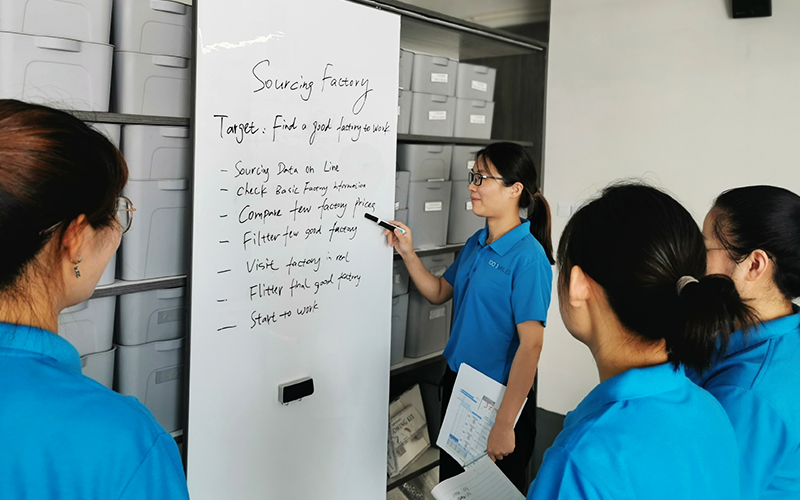 Sourcing Factory
Target: Find a good factory to work
- Sourcing Data on Line
- check Basic Factory Information
- Compare few factory prices
- Filtter few good factory
- Visit factory in real
- Flitter final good factory
- Start to work